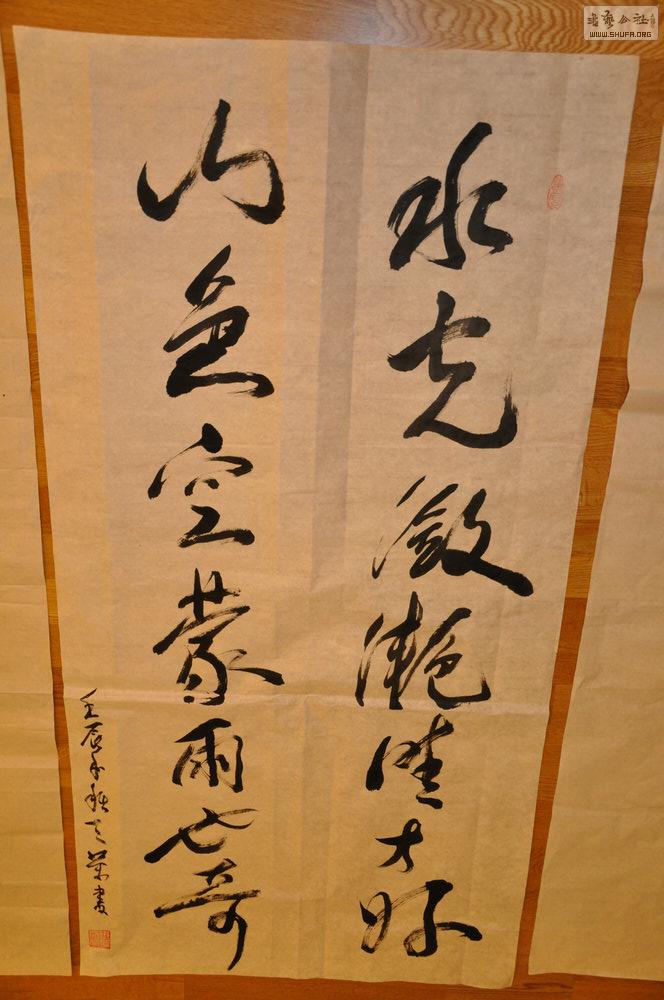 書藝公社
WWW.SHUFA.ORG
水光潋灧晴方好
山色空蒙雨亦奇
壬辰年秋書